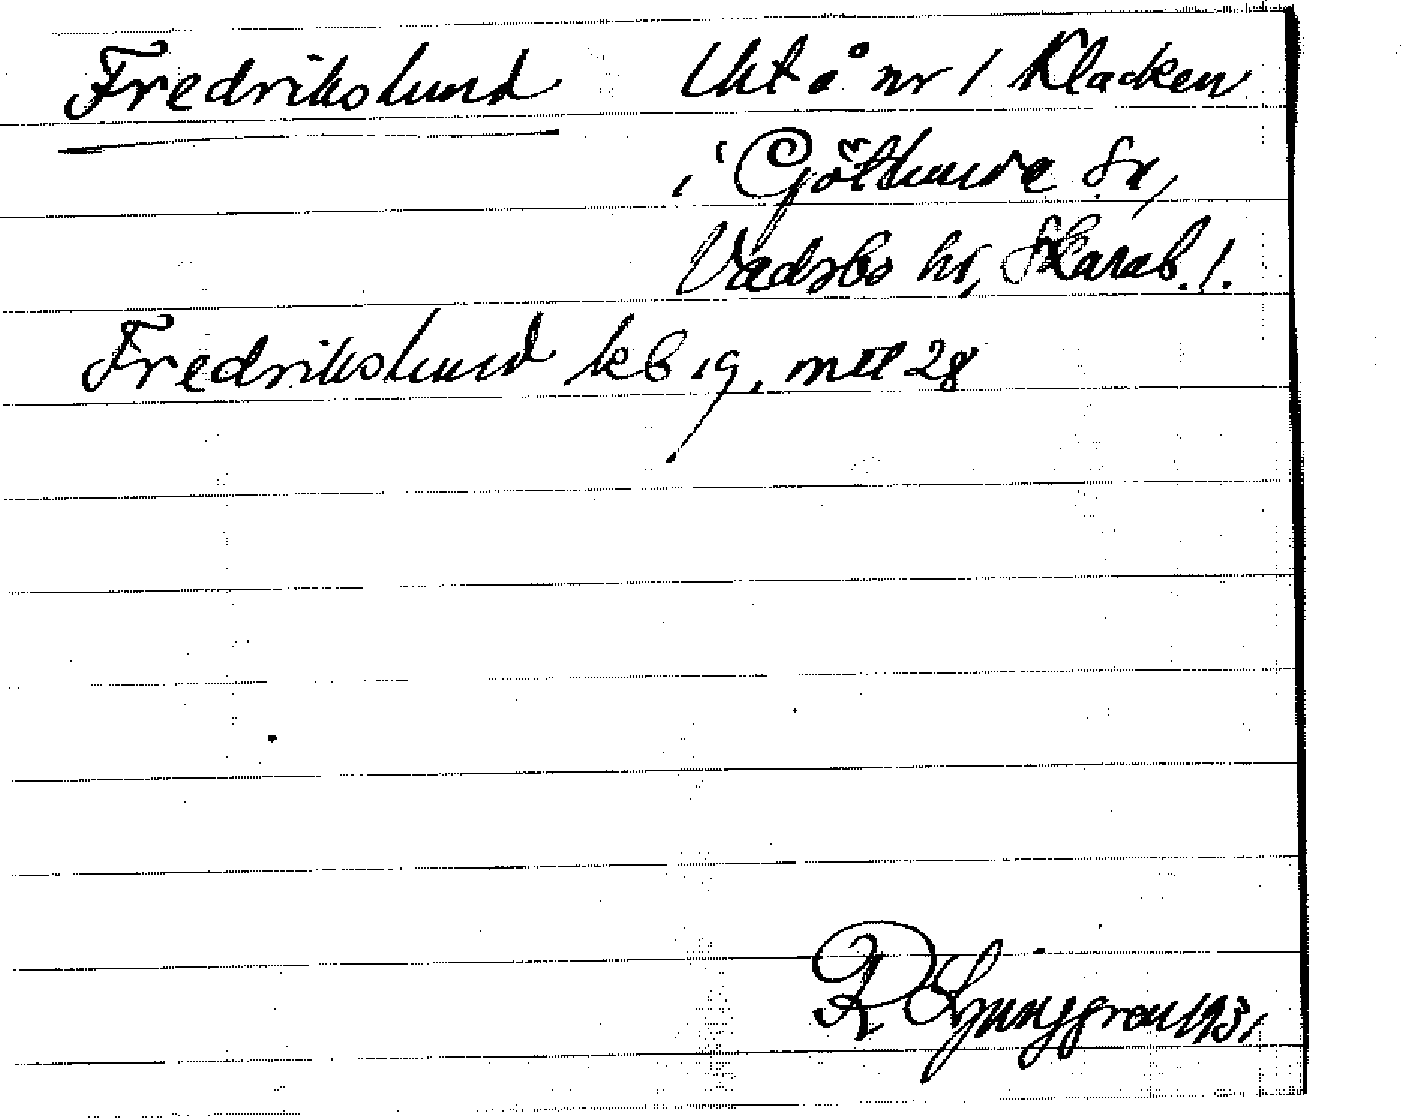 Fredrikslund Lht å nr 1 Klacken
i Götlunda sn,
Vadsbo hd, Skarab. l.
Fredrikslund kb 19, mtl 28
R Ljunggren 1931